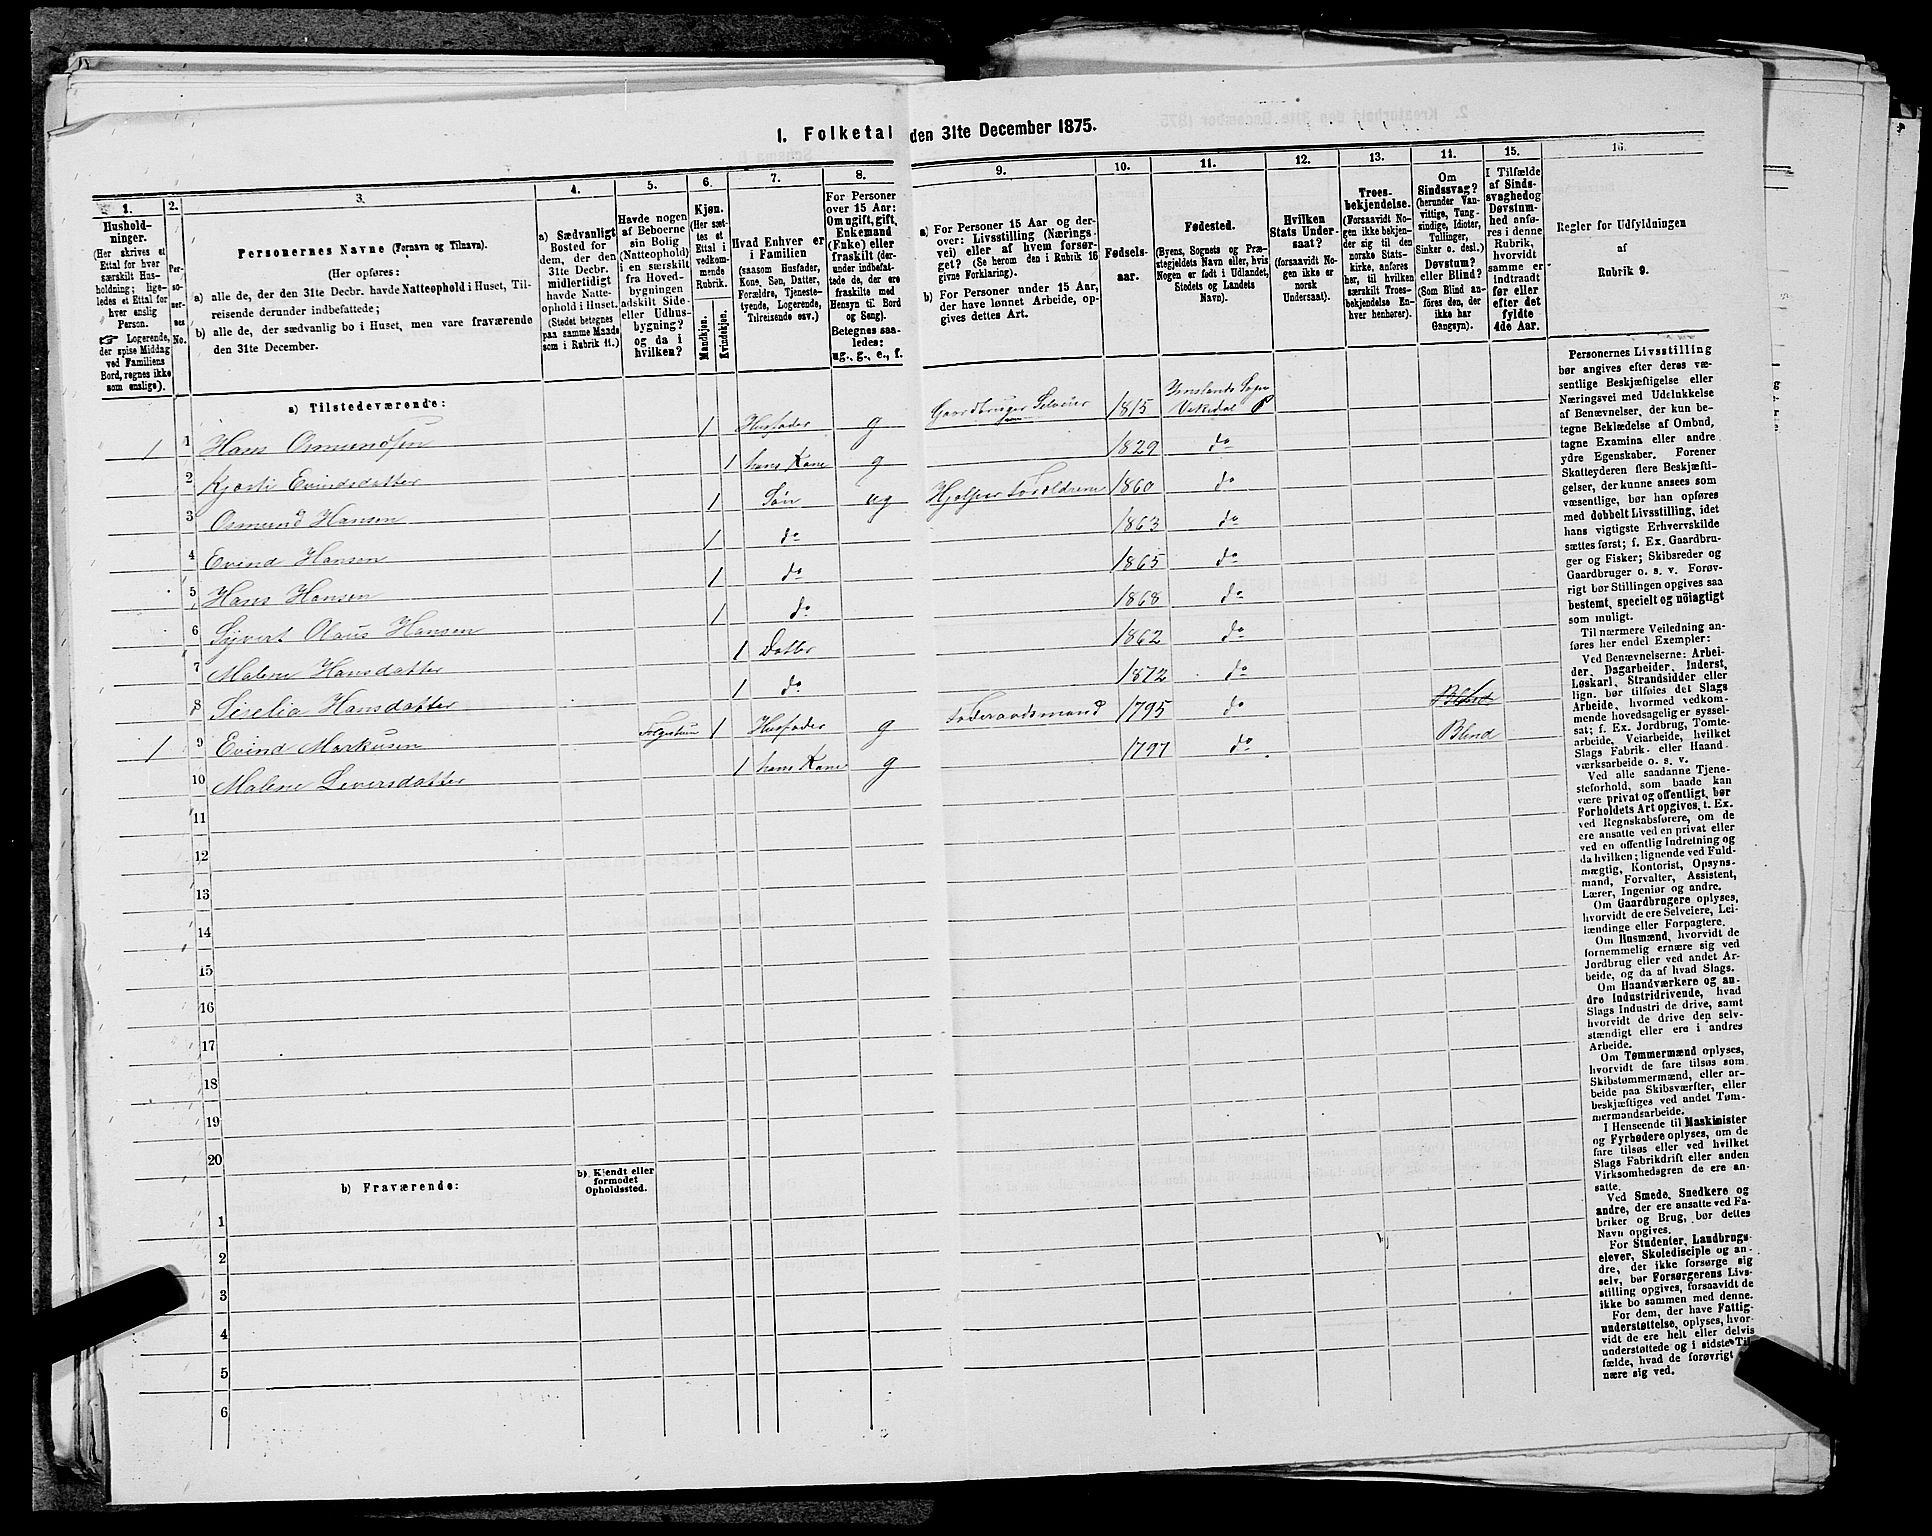 1. Folketal den 31te December 1875.
1.
2.
3.
4.
5.
6.
7.
8.
9.
10.
11.
12.
13.
14.
15.
16.
Hushold-
ninger.
(Her skrives et
Ettal for hver
særskilt Hus-
holdning; lige-
ledes et Ettal for
hver enslig
Person.
☞ Logerende,
der spise Middag
ved Familiens
Bord, regnes ikke
som enslige).
Per-
so-
ner-
nes
No.
Personernes Navne (Fornavn og Tilnavn).
(Her opføres:
a) alle de, der den 31te Decbr. havde Natteophold i Huset, Til-
reisende derunder indbefattede;
b) alle de, der sædvanlig bo i Huset, men vare fraværende
den 31te December.
a) Sædvanligt
Bosted for
dem, der den
31te Decbr.
midlertidigt
havde Natte-
ophold i Huset.
(Stedet betegnes
paa samme Maade
som i Rubrik 11.)
Havde nogen
af Beboerne
sin Bolig
(Natteophold)
i en særskilt
fra Hoved-
bygningen
adskilt Side-
eller Udhus-
bygning?
og da i
hvilken?
Kjøn.
(Her sæt-
tes et
Ettal i
vedkom-
mende
Rubrik.
Mandkjøn.
Kvindekjøn.
Hvad Enhver er
i Familien
(saasom Husfader,
Kone, Søn, Datter,
Forældre, Tjeneste-
tyende, Logerende,
Tilreisende osv.)
For Personer
over 15 Aar:
Om ugift, gift,
Enkemand
(Enke) eller
fraskilt (der-
under indbefat-
tede de, der ere
fraskilte med
Hensyn til Bord
og Seng).
Betegnes saa-
ledes:
ug., g., e., f.
a) For Personer 15 Aar og der-
over: Livsstilling (Nærings-
vei) eller af hvem forsør-
get? (Se herom den i Rubrik 16
givne Forklaring).
b) For Personer under 15 Aar,
der have lønnet Arbeide, op-
gives dettes Art.
Fødsels-
aar.
Fødested.
(Byens, Sognets og Præ-
stegjeldets Navn eller, hvis
Nogen er født i Udlandet,
Stedets og Landets
Navn).
Hvilken
Stats Under-
saat?
(forsaavidt No-
gen ikke er
norsk
Undersaat).
Troes-
bekjendelse.
(Forsaavidt No-
gen ikke bekjen-
der sig til den
norske Stats-
kirke, anføres
her, til hvilken
særskilt Troes-
bekjendelse En-
hver henhører).
Om
Sindssvag?
(herunder Van-
vittige, Tung-
sindige, Idioter,
Tullinger,
Sinker o. desl.)
Døvstum?
eller Blind?
(Som Blind an-
føres den, der
ikke har
Gangsyn).
I Tilfælde
af Sinds-
svaghed og
Døvstum-
hed anfø-
res i denne
Rubrik,
hvorvidt
samme er
indtraadt
før eller
efter det
fyldte
4de Aar.
Regler for Udfyldningen
af
Rubrik 9.
a) Tilstedeværende:
1 1 Hans Osmundsen 1 Husfader g Gaardbruger Selveier 1815 Imslands Sogn
Vikedal P
2 Kjersti Evindsdatter 1 hans Kone g 1829 do
3 Osmund Hansen 1 Søn ug Hjelper Forældrene 1860 do
4 Evind Hansen 1 do 1863 do
5 Hans Hansen 1 do 1865 do
6 Sivert Olaus Hansen 1 do 1868 do
7 Malene Hansdatter 1 Datter 1862 do
8 Siselia Hansdatter 1 do 1872 do
1 9 Evind Markusen 1 Husfader g Føderaadsmand 1795 do Blind
10 Malene Siversdatter 1 hans Kone g 1797 do Blind
11
12
13
14
15
16
17
18
19
20
b) Fraværende:
b) Kjendt eller
formodet
Opholdssted.
1
2
3
4
5
6
Personernes Livsstilling
bør angives efter deres væ-
sentlige Beskjæftigelse eller
Næringsvei med Udelukkelse
af Benævnelser, der kun be-
tegne Beklædelse af Ombud,
tagne Examina eller andre
ydre Egenskaber. Forener
Skatteyderen flere Beskjæfti-
gelser, der kunne ansees som
væsentlige, bør han opføres
med dobbelt Livsstilling, idet
hans vigtigste Erhvervskilde
sættes først; f. Ex. Gaardbru-
ger og Fisker; Skibsreder og
Gaardbruger o. s. v. Forøv-
rigt bør Stillingen opgives saa
bestemt, specielt og nöiagtigt
som muligt.
Til nærmere Veiledning an-
føres her endel Exempler:
Ved Benævnelserne: Arbei-
der, Dagarbeider, Inderst,
Løskarl, Strandsidder eller
lign. bør tilføies det Slags
Arbeide, hvormed vedkom-
mende hovedsagelig er syssel-
sat; f. Ex. Jordbrug, Tomte-
arbeide, Veiarbeide, hvilket
Slags Fabrik- eller Haand-
værksarbeide o. s. v.
Ved alle saadanne Tjene-
steforhold, som baade kan
være privat og offentligt, bør
Forholdets Art opgives, t. Ex.
ved Regnskabsførere, om de
ere ansatte ved en privat eller
ved en offentlig Indretning og
da hvilken; lignende ved Fuld-
mægtig, Kontorist, Opsyns-
mand, Forvalter, Assistent,
Lærer, Ingeniør og andre.
Om Gaardbrugere oplyses,
hvorvidt de ere Selveiere, Lei-
lændinge eller Forpagtere.
Om Husmænd, hvorvidt de
fornemmelig ernære sig ved
Jordbrug eller ved andet Ar-
beide, og da af hvad Slags.
Om Haandværkere og an-
dre Industridrivende, hvad
Slags Industri de drive, samt
hvorvidt de drive den selv-
stændigt eller ere i andres
Arbeide.
Om Tømmermænd oplyses,
hvorvidt de fare tilsøs som
Skibstømmermænd, eller ar-
beide paa Skibsværfter, eller
beskjæftiges ved andet Tøm-
mermandsarbeide.
I Henseende til Maskinister
og Fyrbødere oplyses, om de
fare tilsøs eller ved hvilket
Slags Fabrikdrift eller anden
Virksomhedsgren de ere an-
satte.
Ved Smede, Snedkere og
andre, der ere ansatte ved Fa-
briker og Brug, bør dettes
Navn opgives.
For Studenter, Landbrugs-
elever, Skoledisciple og an-
dre, der ikke forsørge sig
selv, bør Forsørgerens Livs-
stilling opgives, forsaavidt de
ikke bo sammen med denne.
For dem, der have Fattig-
understøttelse, oplyses, hvor-
vidt de ere helt eller delvis
understøttede og i sidste Til-
fælde, hvad de forøvrigt
nære sig ved.